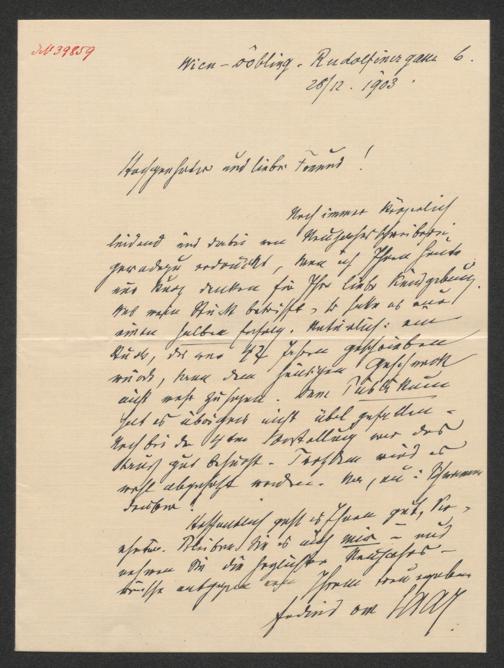 JN 39859
Wien – Döbling. Rudolfinergasse 6.
28/12. 1903.
Hochgeehrter und lieber Freund!
Noch immer körperlich
leidend und dabei von Neujahrsschreiberei
geradezu erdrückt, kann ich Ihnen heute
nur kurz danken für Ihre liebe Kundgebung.
Was mein Stück betrifft, so hatte es nur
einen halben Erfolg. Natürlich: ein
Stück, das vor 47 Jahren geschrieben
wurde, kann dem heutigen Geschmack
nicht mehr zusagen. Dem Publikum
hat es übrigens nicht übel gefallen –
Noch bei der Vorstellung war das
Haus gut besucht. – Trotzdem wird es
wohl abgesetzt werden. Na, au: Schwamm
drüber!
Hoffentlich geht es Ihnen gut, Ver-
ehrter. Bleiben Sie es auch mir – und
nehmen Sie die herzlichsten Neujahrs-
grüsse entgegen Ihrem treu ergebenen
Ferdinand von Saar